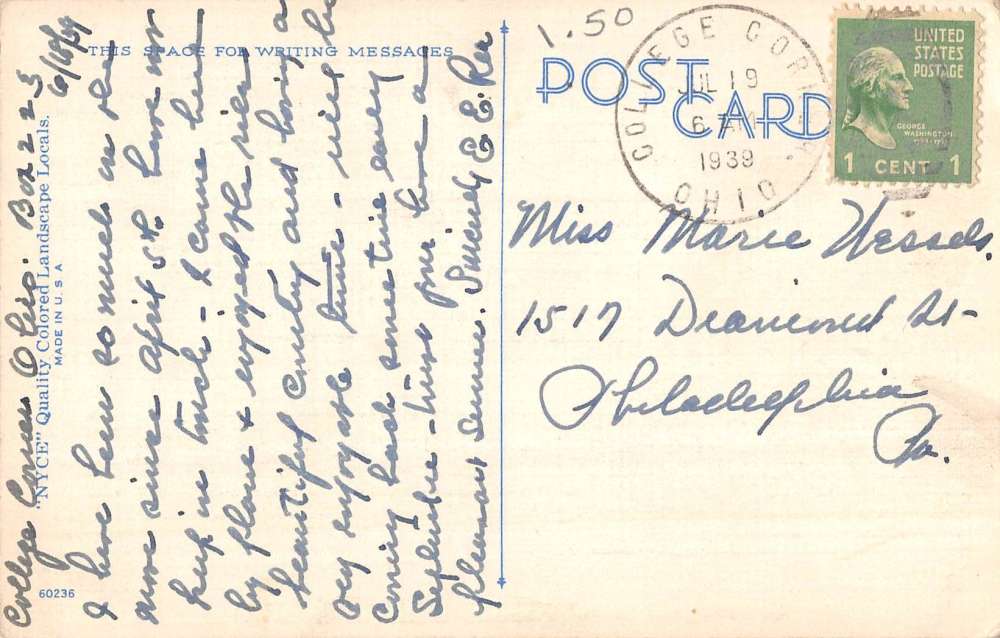 THIS SPACE FOR WRITING MESSAGES
College Corner Ohio. Box 223
I have been so much on the
move since April 5th have not
kept in touch - I came here
by plane & enjoyed the ride
beautiful country and having a
very enjoyable time - will be
coming back sometime early
September - trust you have a
pleasant summer. Sincerely E. E.
"NYCE" Quality Colored Landscape Locals.
MADE IN U.S.A
60236
1.50
POST CARD
COLLEGE CORNER
JUL 19
6 AM
1939
OHIO
UNITED
STATES
POSTAGE
GEORGE
WASHINGTON
1 CENT 1
Miss Marie Wessels.
1517 Diamond St-
Philadelphia
Pa.